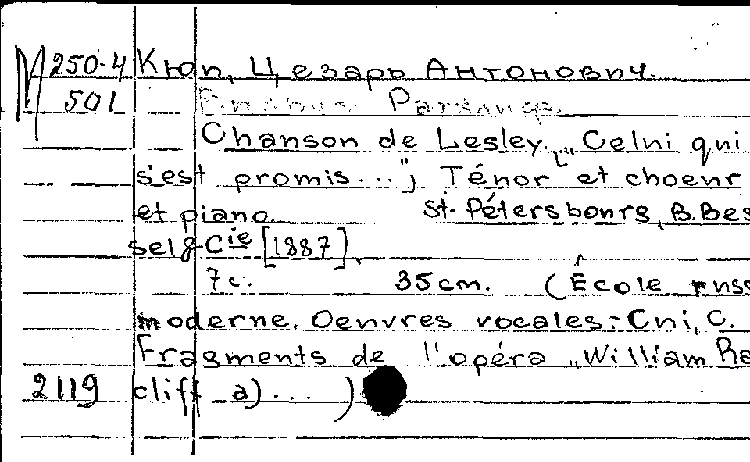 М 250-4 Кюи, Цезарь Антонович.
501
Chanson de Lesley. „Celui qui
s'est promis..."; Ténor et choeur
et piano. St.-Pétersbourg, B. Bes
sel & Cie [1887].
7 c. 35 cm. (École russ
moderne. Oeuvres vocales: Cui, C.
Fragments de l'opéra „William Ra
2119 cliff a)...)